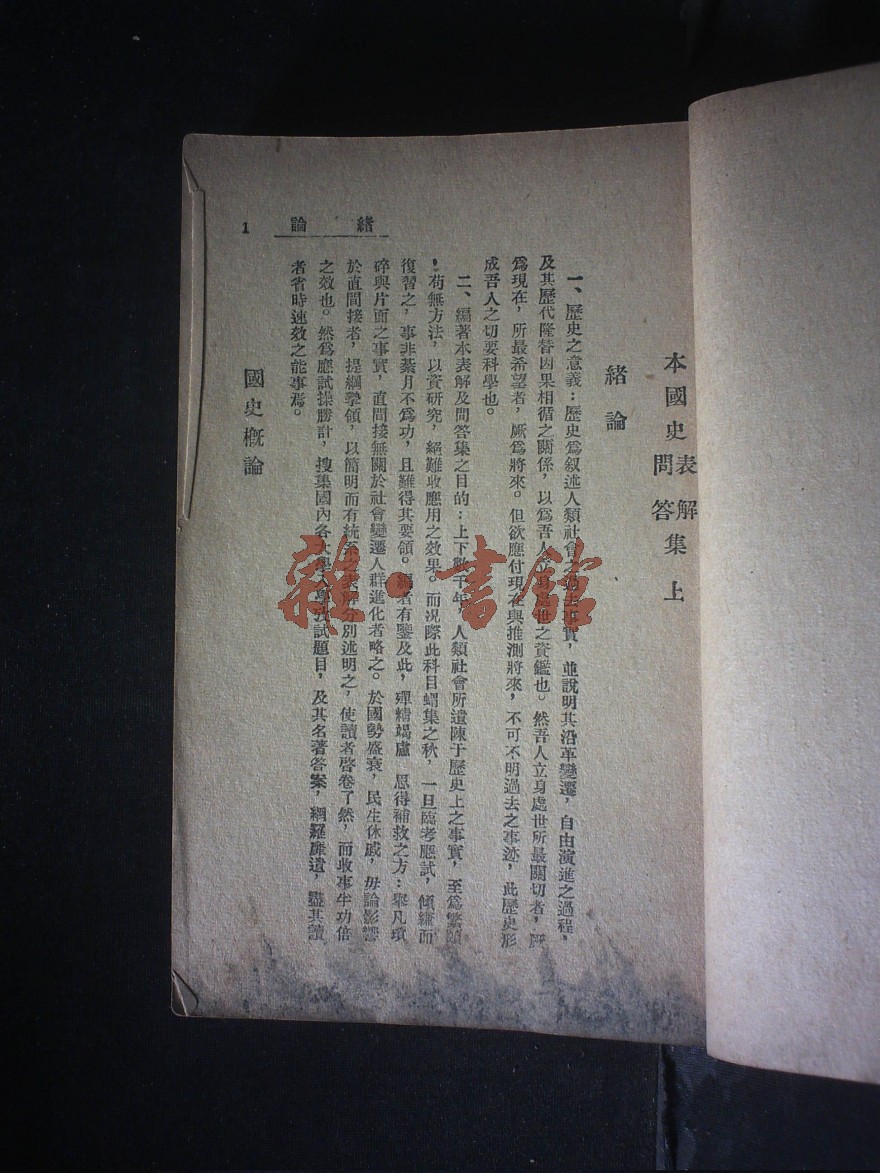 本國史表解問答集 上
緒論
一、歷史之意義：歷史爲叙述人類社會之過去事實，並說明其沿革變遷，自由演進之過程，
及其歷代隆替因果相循之關係，以爲吾人立身處世之資鑑也。然吾人立身處世所最關切者，厥
爲現在，所最希望者，厥爲將來。但欲應付現在與推測將來，不可不明過去之事迹，此歷史形
成吾人之切要科學也。
二、編著本表解及問答集之目的：上下數千年，人類社會所遺陳于歷史上之事實，至爲繁賾
，苟無方法，以資研究，絕難收應用之效果。而况際此科目蝟集之秋，一旦臨考應試，傾囊而
復習之，事非綦月不爲功，且難得其要領。編者有鑒及此，殫精竭慮 思得補救之方：舉凡瑣
碎與片面之事實，直間接無關於社會變遷人群進化者略之。於國勢盛衰，民生休戚，毋論影響
於直間接者，提綱挈領，以簡明而有統系之表解分別述明之，使讀者啓卷了然，而收事半功倍
之效也。然爲應試操勝計，搜集國內各大學入學考試題目，及其名著答案，網羅靡遺，盡其讀
者省時速效之能事焉。
國史概論
緒論
1
雜·書館